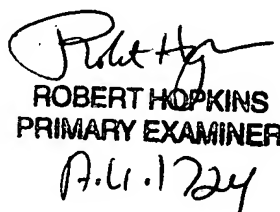 Robert Hop
ROBERT HOPKINS
PRIMARY EXAMINER
A.U. 1724